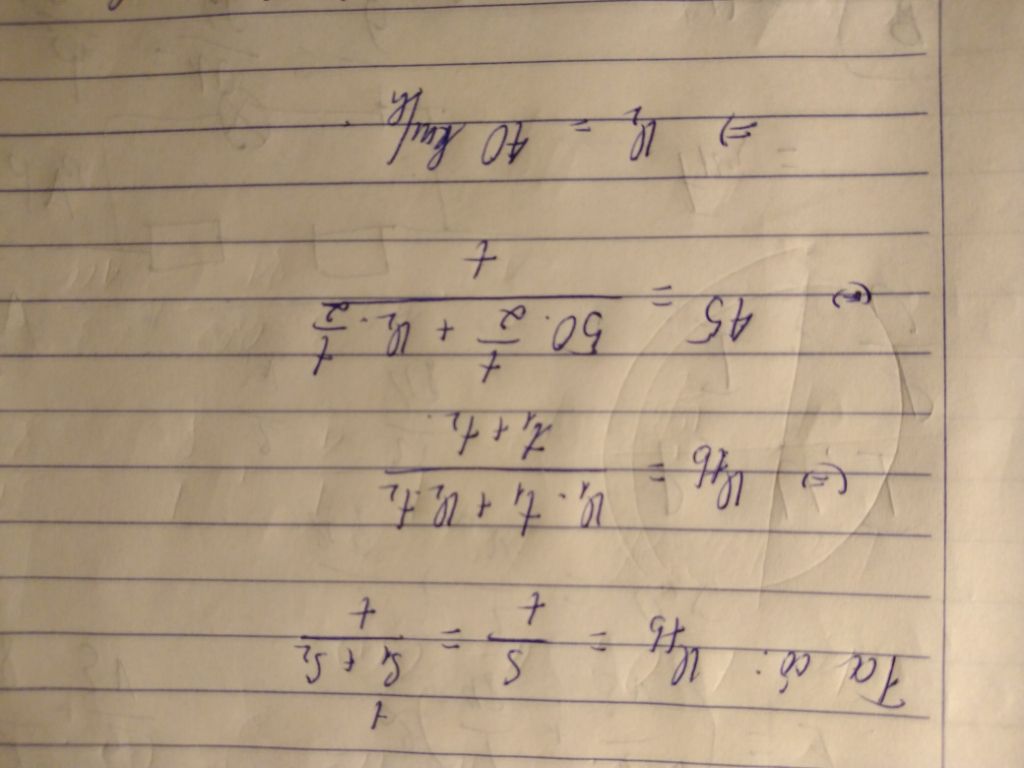 1
Ta có: v_tb = S/t = (S₁ + S₂)/t
(=) v_tb = (v₁ . t₁ + v₂ . t₂)/(t₁ + t₂)
(=) 45 = (50 . t/2 + v₂ . t/2)/t
=) v₂ = 40 km/h